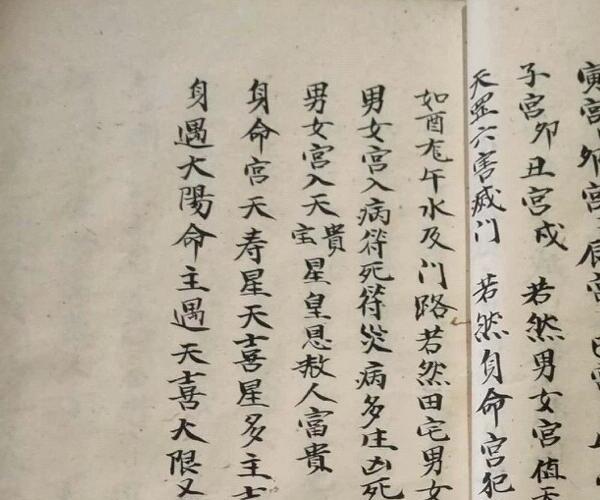 寅宫卯宫
子宫卯丑宫戍 若然男女宫值
天罡六害灭门 若然身命宫犯
如酉尨午水及门路若然田宅男女
男女宫入病符死符災病多庄凶死
男女宫入天贵宝星皇恩赦人富贵
身命宫天寿星天喜星多主
身遇大陽命主遇天喜大限又